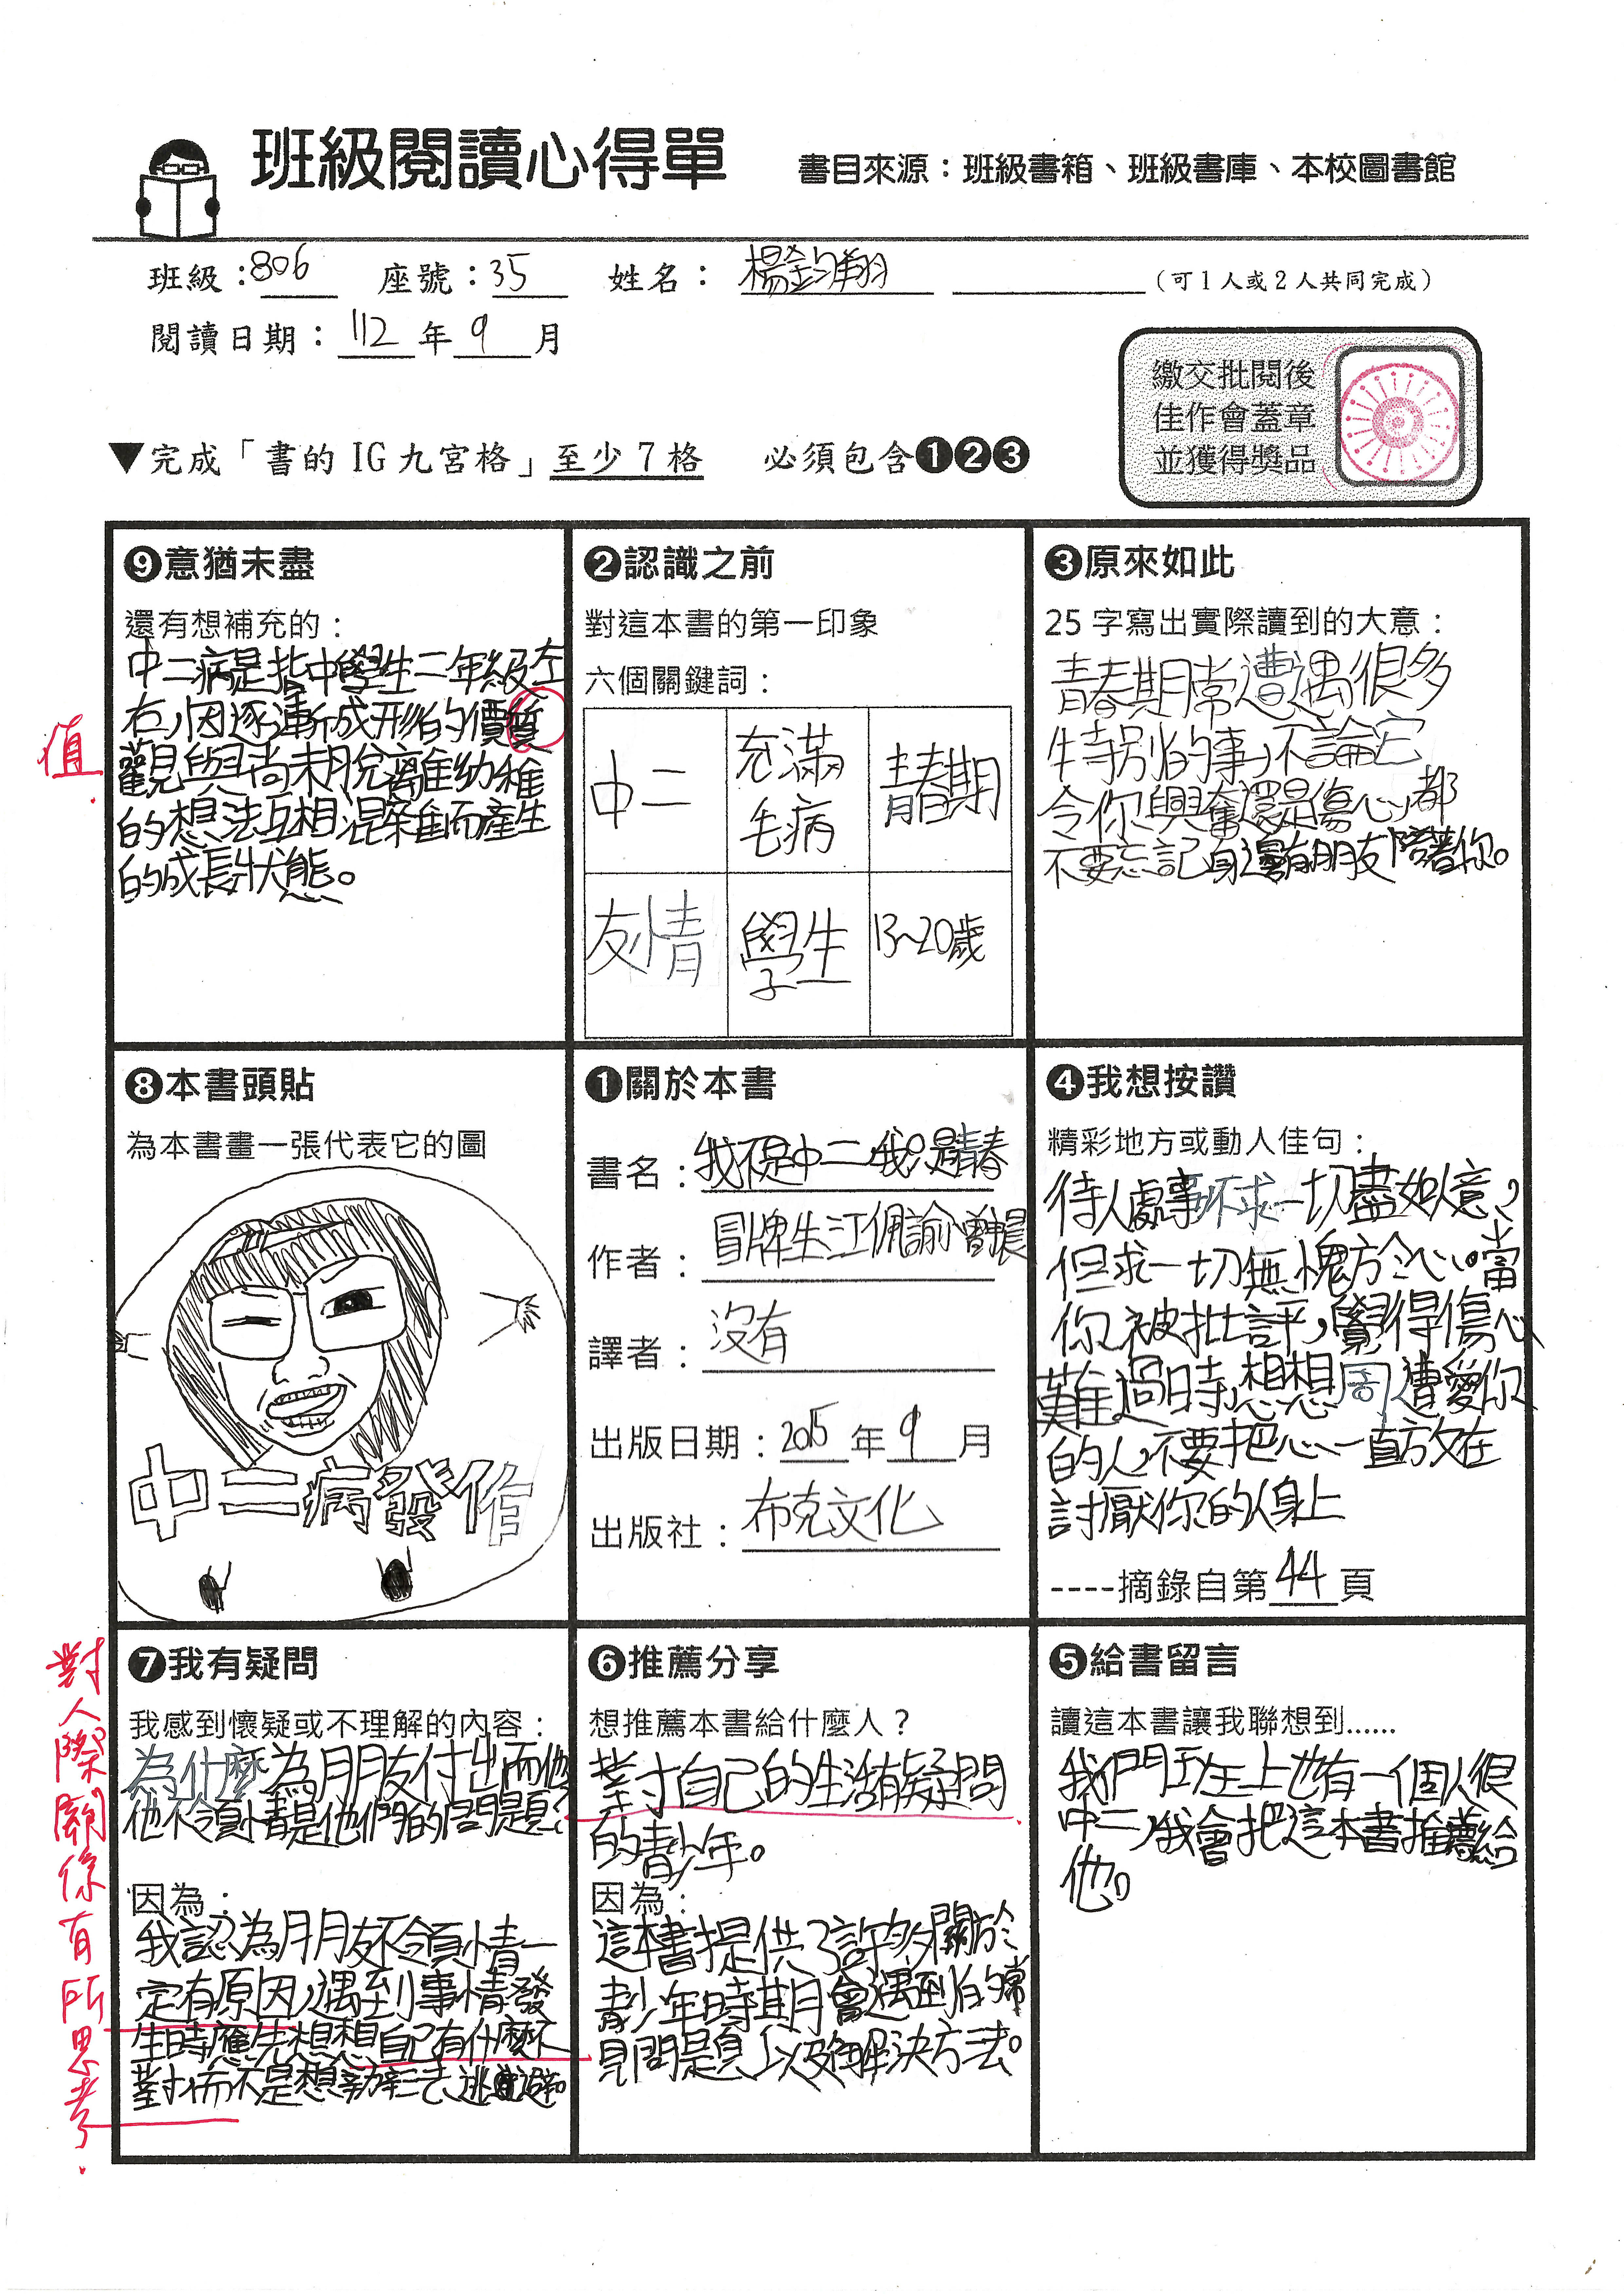 班級閱讀心得單
書目來源：班級書箱、班級書庫、本校圖書館
班級：806 座號：35 姓名：楊鈞翔 （可1人或2人共同完成）
閱讀日期：112年9月
繳交批閱後
佳作會蓋章
並獲得獎品
▼完成「書的 IG 九宮格」至少7格 必須包含❶❷❸
❾意猶未盡
還有想補充的：
中二病是指中學生二年級左
右，因逐漸成形的價質
觀與尚未脫離幼稚
的想法互相混雜而產生
的成長狀態。
值
❷認識之前
對這本書的第一印象
六個關鍵詞：
中二
充滿
毛病
青春期
友情
學生
13~20歲
❸原來如此
25 字寫出實際讀到的大意：
青春期常遭遇很多
特別的事，不論它
令你興奮還是傷心，都
不要忘記身邊有朋友陪著你。
❽本書頭貼
為本書畫一張代表它的圖
中二病發作
❶關於本書
書名：我不是中二，我只是青春
作者：冒牌生江佩諭
譯者：沒有
出版日期：2015年9月
出版社：布克文化
❹我想按讚
精彩地方或動人佳句：
待人處事不求一切盡如人意，
但求一切無愧於心。當
你被批評，覺得傷心
難過時，想想周遭愛你
的人，不要把心一直放在
討厭你的人身上
----摘錄自第44頁
❼我有疑問
我感到懷疑或不理解的內容：
為什麼為朋友付出而他
他不領情是他們的問題？
因為：
我認為朋友不領情一
定有原因，遇到事情發
生時應先想想自己有什麼不
對，而不是想方設法逃避
對人際關係有所思考.
❻推薦分享
想推薦本書給什麼人？
對自己的生活有疑問
的青少年。
因為：
這本書提供了許多關於
青少年時期會遇到的常
見問題以及解決方法。
❺給書留言
讀這本書讓我聯想到……
我們班上也有一個人很
中二，我會把這本書推薦給
他。